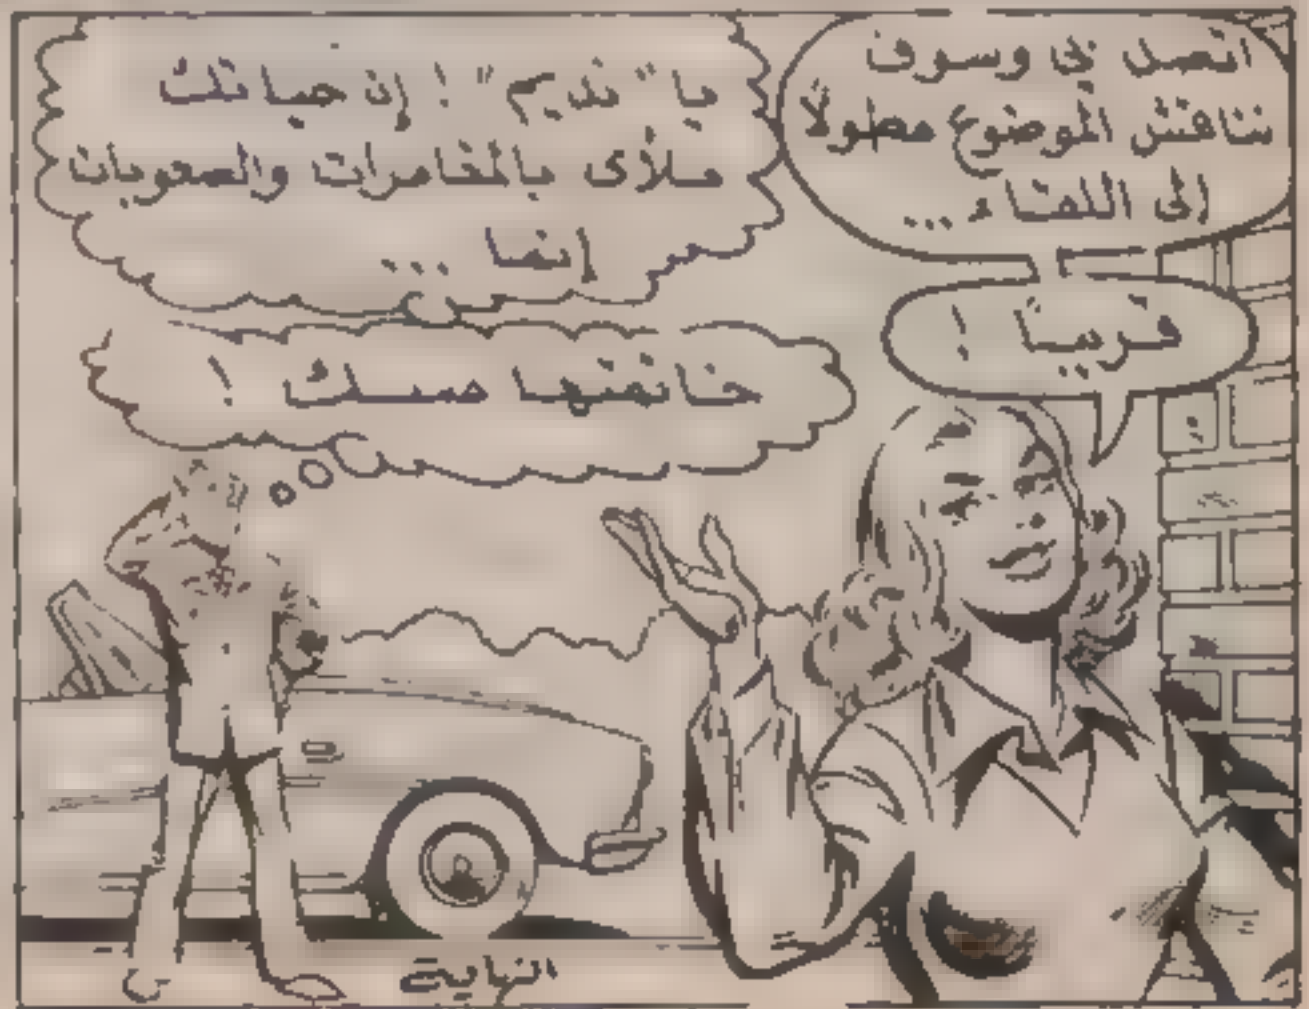 اتصل بي وسوف
نناقش الموضوع مطولاً
إلى اللقاء ...
قريباً !
يا "نديم" ! إن حياتك
ملأى بالمغامرات والصعوبات
إنما ...
خاتمتها مسك !
النهاية